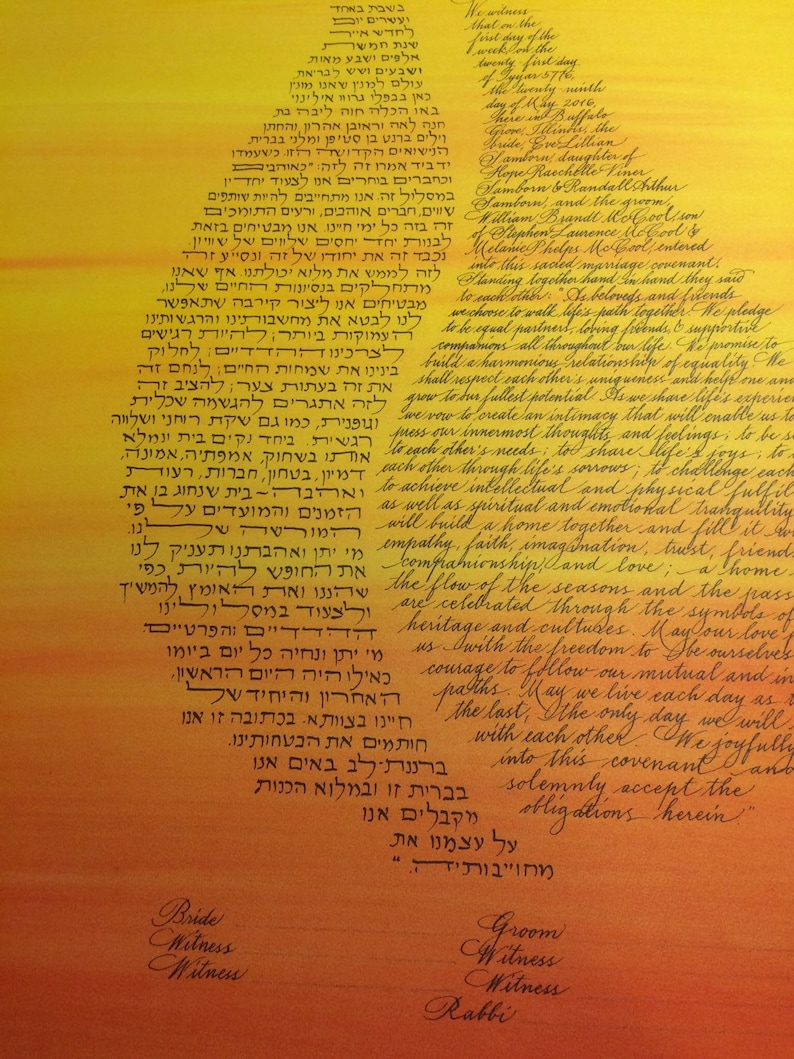 בשבת באחד
ועשרים יום
לחדש אייר
שנת חמשת
אלפים ושבע מאות
ושבעים ושש לבריאת
עולם למנין שאנו מונין
כאן בבפלו גרוו אילינוי
באו הכלה חוה ליבה בת
חנה לאה וראיבן אהרון, והחתן
וילים ברנט בן סטיפן ומלני בברית
הנישואים הקדושה הזו. כשעמדו
יד ביד אמרו זה לזה: "כאוהבים
וכחברים בוחרים אנו לצעוד יחדיו
במסלול זה. אנו מתחייבים להיות שותפים
שווים, חברים אוהבים, ורעים התומכים
זה בזה כל ימי חיינו. אנו מבטיחים בזאת
לבנות יחד יחסים שלווים של שוויון.
נכבד זה את יחודו של זה ונסייע זה
לזה לממש את מלוא יכולתנו. אף שאנו
מתחלקים בנסיונות החיים שלנו,
מבטיחים אנו ליצור קירבה שתאפשר
לנו לבטא את מחשבותינו והרגשותינו
העמוקות ביותר; להיות רגישים
לצרכינו ההדדיים; לחלוק
בינינו את שמחות החיים; לנחם זה
את זה בעתות צער; להציב זה
לזה אתגרים להגשמה שכלית
וגופנית, כמו גם שקת רוחני ושלווה
רגשית. ביחד נקים בית ונמלא
אותו בשחוק, אמפתיה, אמונה,
דמיון, בטחון, חברות, רעות
ואהבה - בית שנחוג בו את
הזמנים והמועדים על פי
המורשה שלנו.
מי יתן ואהבתנו תעניק לנו
את החופש להיות כפי
שהננו ואת האומץ להמשיך
ולצעוד במסלולינו
ההדדיים והפרטיים.
מי יתן ונחיה כל יום ביומו
כאילו היה היום הראשון,
האחרון והיחיד של
חיינו בצוותא. בכתובה זו אנו
חותמים את הבטחותינו.
ברננת-לב באים אנו
בברית זו ובמלוא הכנות
מקבלים אנו
על עצמנו את
מחוייבותיה. "
We witness
that on the
first day of the
week, on the
twenty-first day
of Iyyar 5776,
the twenty-ninth
day of May, 2016,
here in Buffalo
Grove, Illinois, the
bride, Eve Lillian
Samborn, daughter of
Hope Raechelle Viner
Samborn & Randall Arthur
Samborn, and the groom,
William Brandt McCool, son
of Stephen Laurence McCool &
Melanie Phelps McCool, entered
into this sacred marriage covenant.
Standing together hand in hand they said
to each other: "As beloveds and friends
we choose to walk life's path together. We pledge
to be equal partners, loving friends, & supportive
companions all throughout our life. We promise to
build a harmonious relationship of equality. We
shall respect each other's uniqueness and help one and
grow to our fullest potential. As we share life's experien
we vow to create an intimacy that will enable us to
press our innermost thoughts and feelings; to be se
to each other's needs; to share life's joys; to
each other through life's sorrows; to challenge each
to achieve intellectual and physical fulfil
as well as spiritual and emotional tranquility
will build a home together and fill it w
empathy, faith, imagination, trust, friend
companionship, and love; a home
the flow of the seasons and the pass
are celebrated through the symbols of
heritage and cultures. May our love p
us with the freedom to be ourselves
courage to follow our mutual and in
paths. May we live each day as t
the last, & the only day we will
with each other. We joyfully
into this covenant and
solemnly accept the
obligations herein."
Bride
Witness
Witness
Groom
Witness
Witness
Rabbi